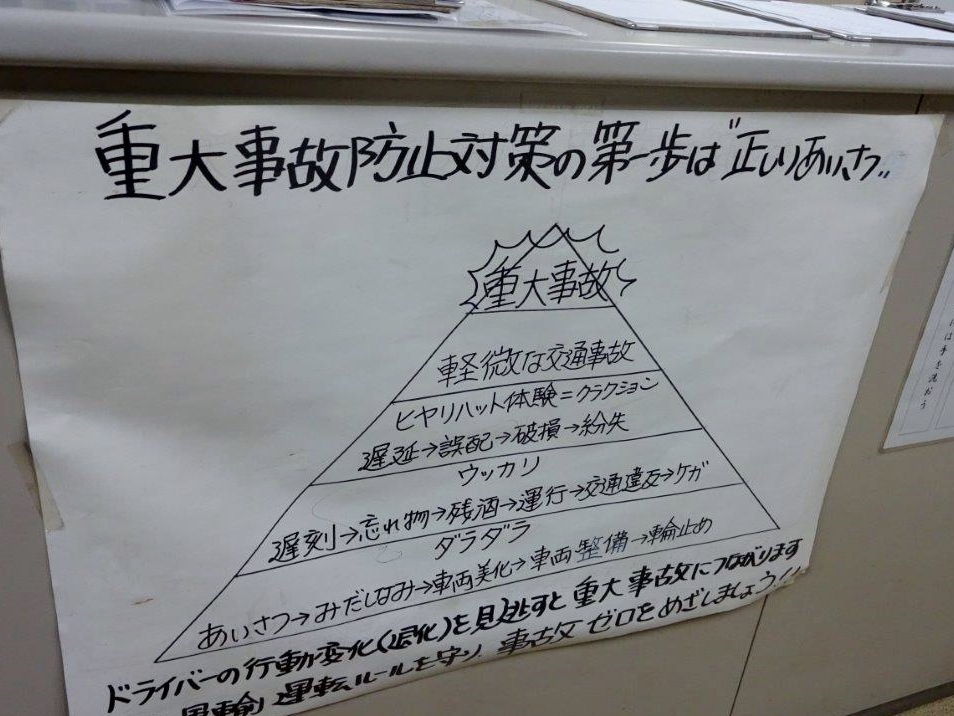 重大事故防止対策の第一歩は"正しいあいさつ"
重大事故
軽微な交通事故
ヒヤリハット体験=クラクション
遅延→誤配→破損→紛失
ウッカリ
遅刻→忘れ物→残酒→運行→交通違反→ケガ
ダラダラ
あいさつ→みだしなみ→車両美化→車両整備→輪止め
ドライバーの行動変化(退化)を見逃すと重大事故につながります
運転ルールを守り、事故ゼロをめざしましょう!!
は手を洗おう